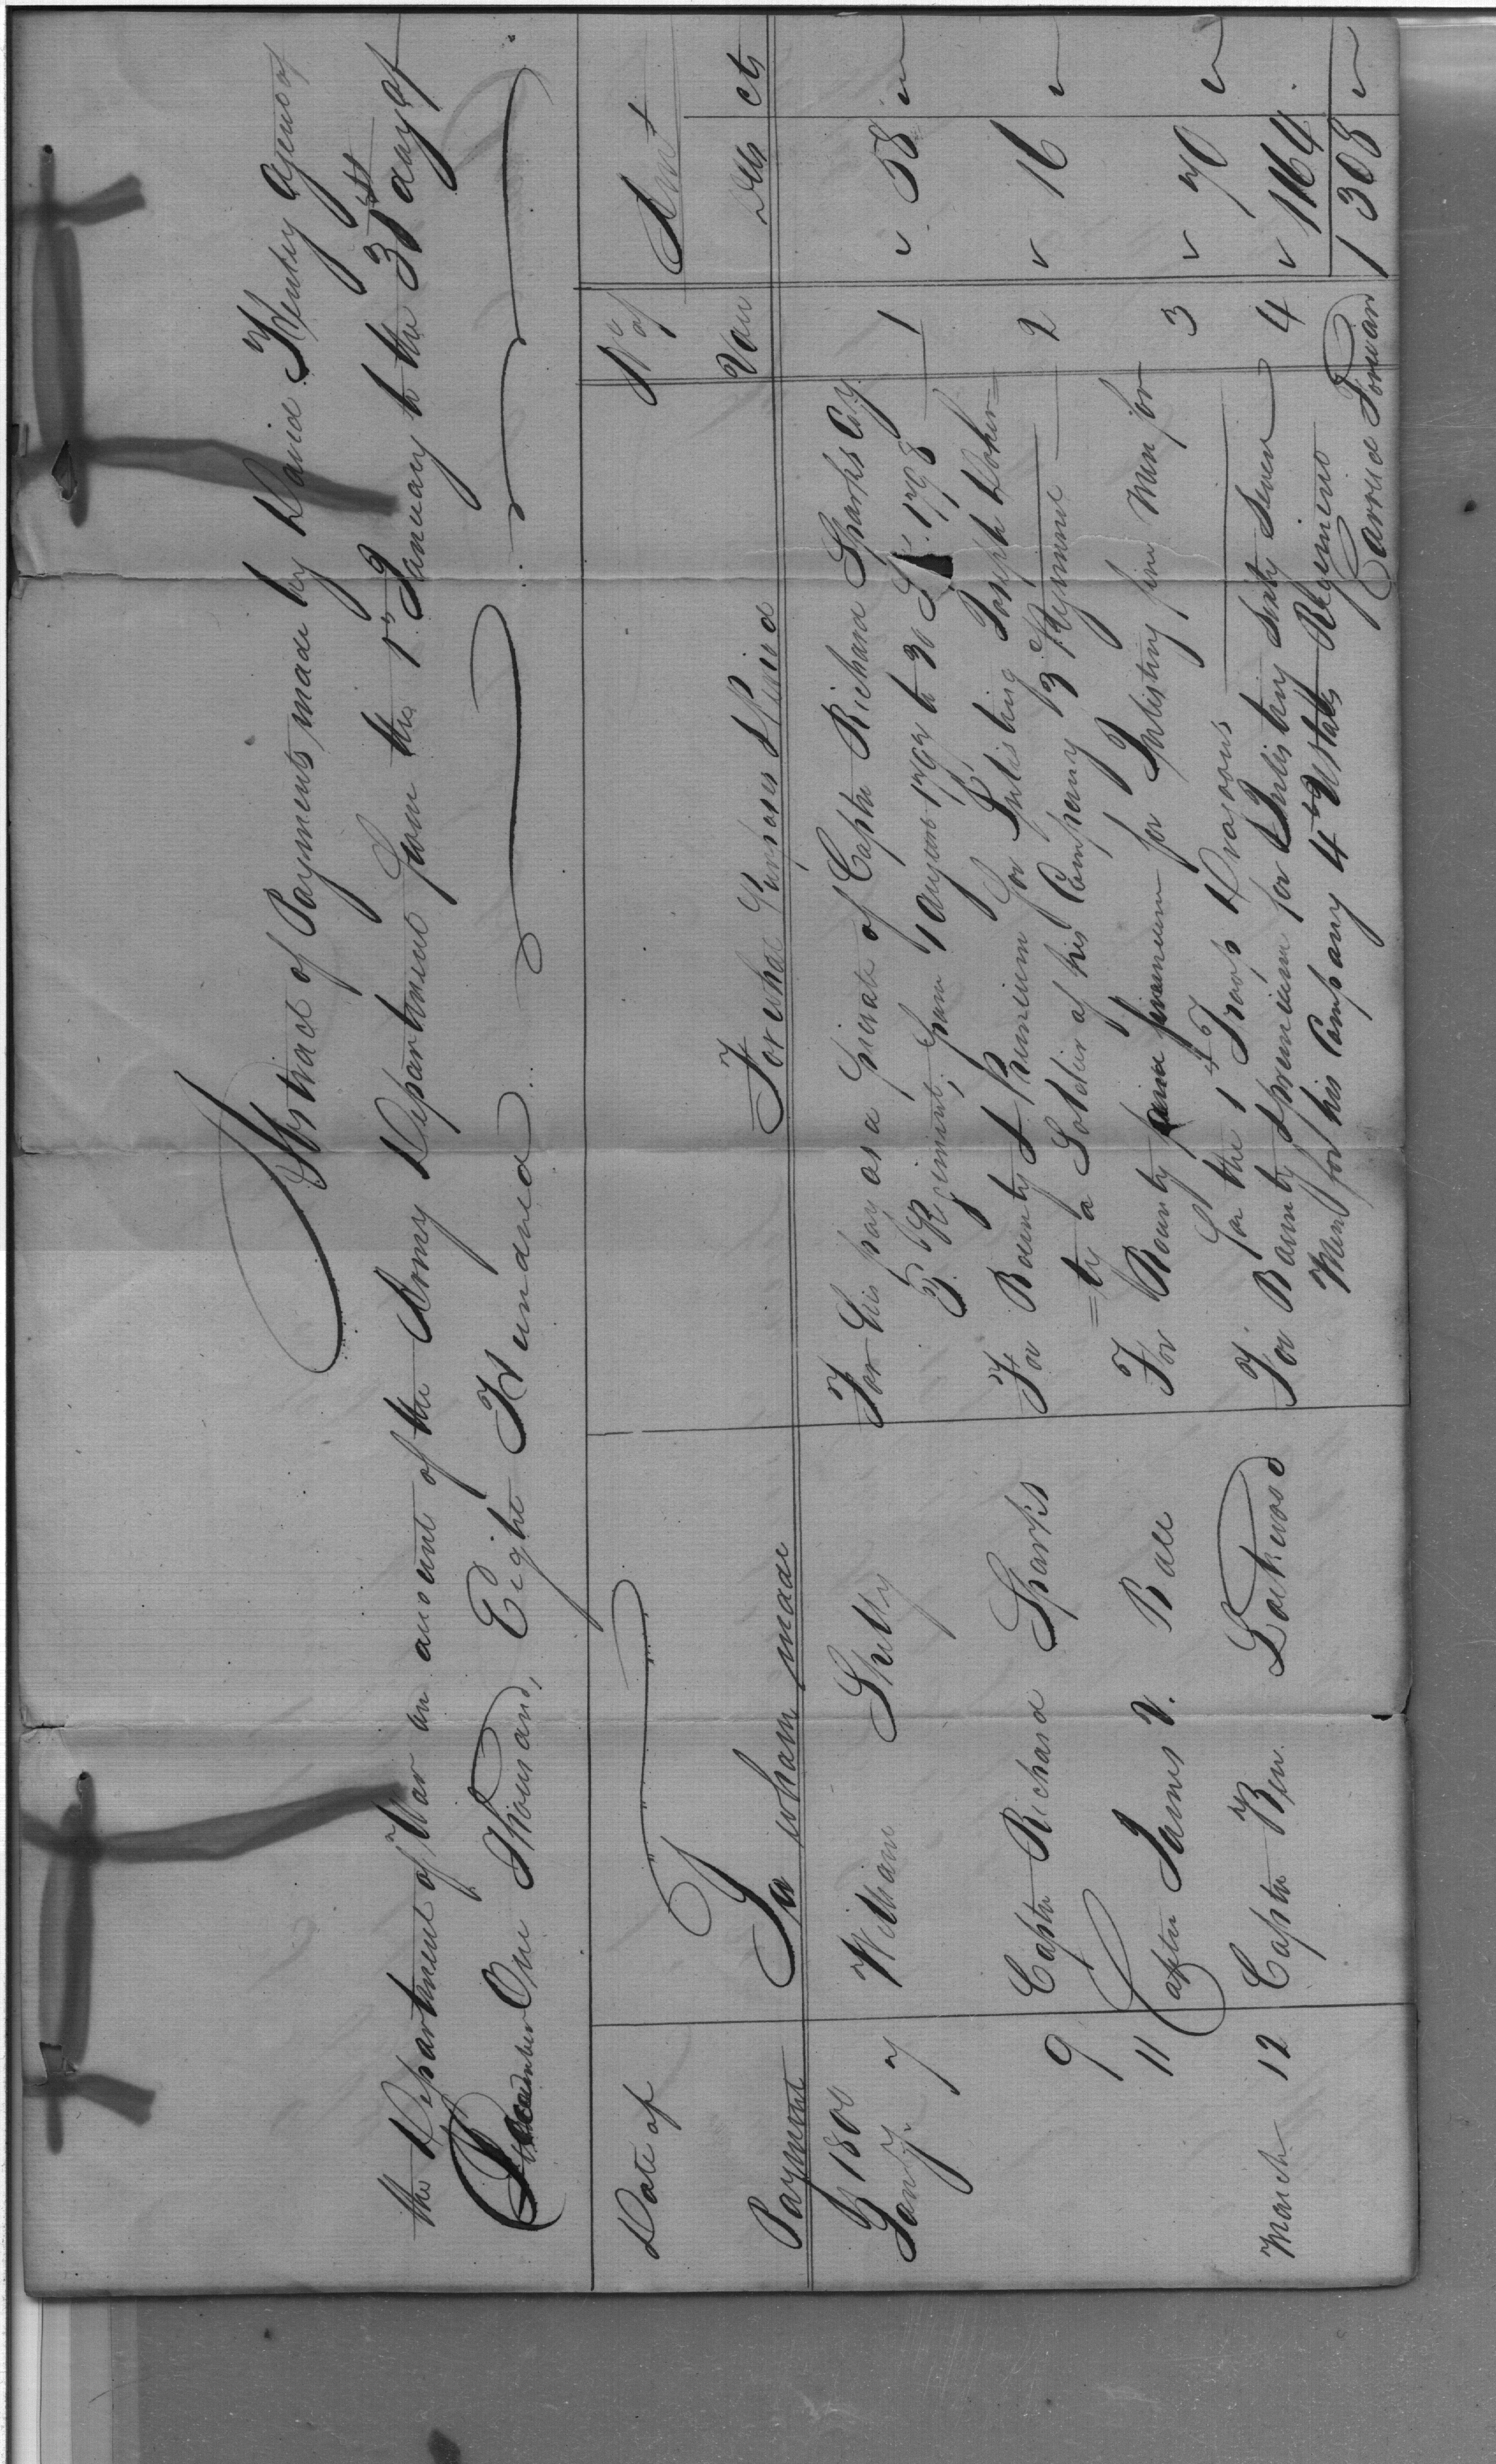 Abstract of Payments made by David Henley Agent of
the Department of War on account of the Army Department from the 1st January to the 31st day of
December One Thousand, Eight Hundred
Date of Payment To whom made For what Purposes & Paid No of Vou Amot Dlls cts
1800
Jany 7 William Shelly For his pay as a private of Captn Richard Sparks Coy
3d Regiment, from 1 August 1797 to 30 1798 1 58
9 Captn Richard Sparks For Bounty & Premium for Inlisting Joseph Doher=
=ty a Soldier of his Company 3d Regiment 2 16
11 Captn James V. Ball For Bounty and premium for Inlisting five Men for
for the 1st Troop Dragoons 3 70
March 12 Captn Ben Lockwood For Bounty & premium for Inlisting Sixty Seven
Men for his Company 4th U States Regiment 4 1164
Carried Forward 1308